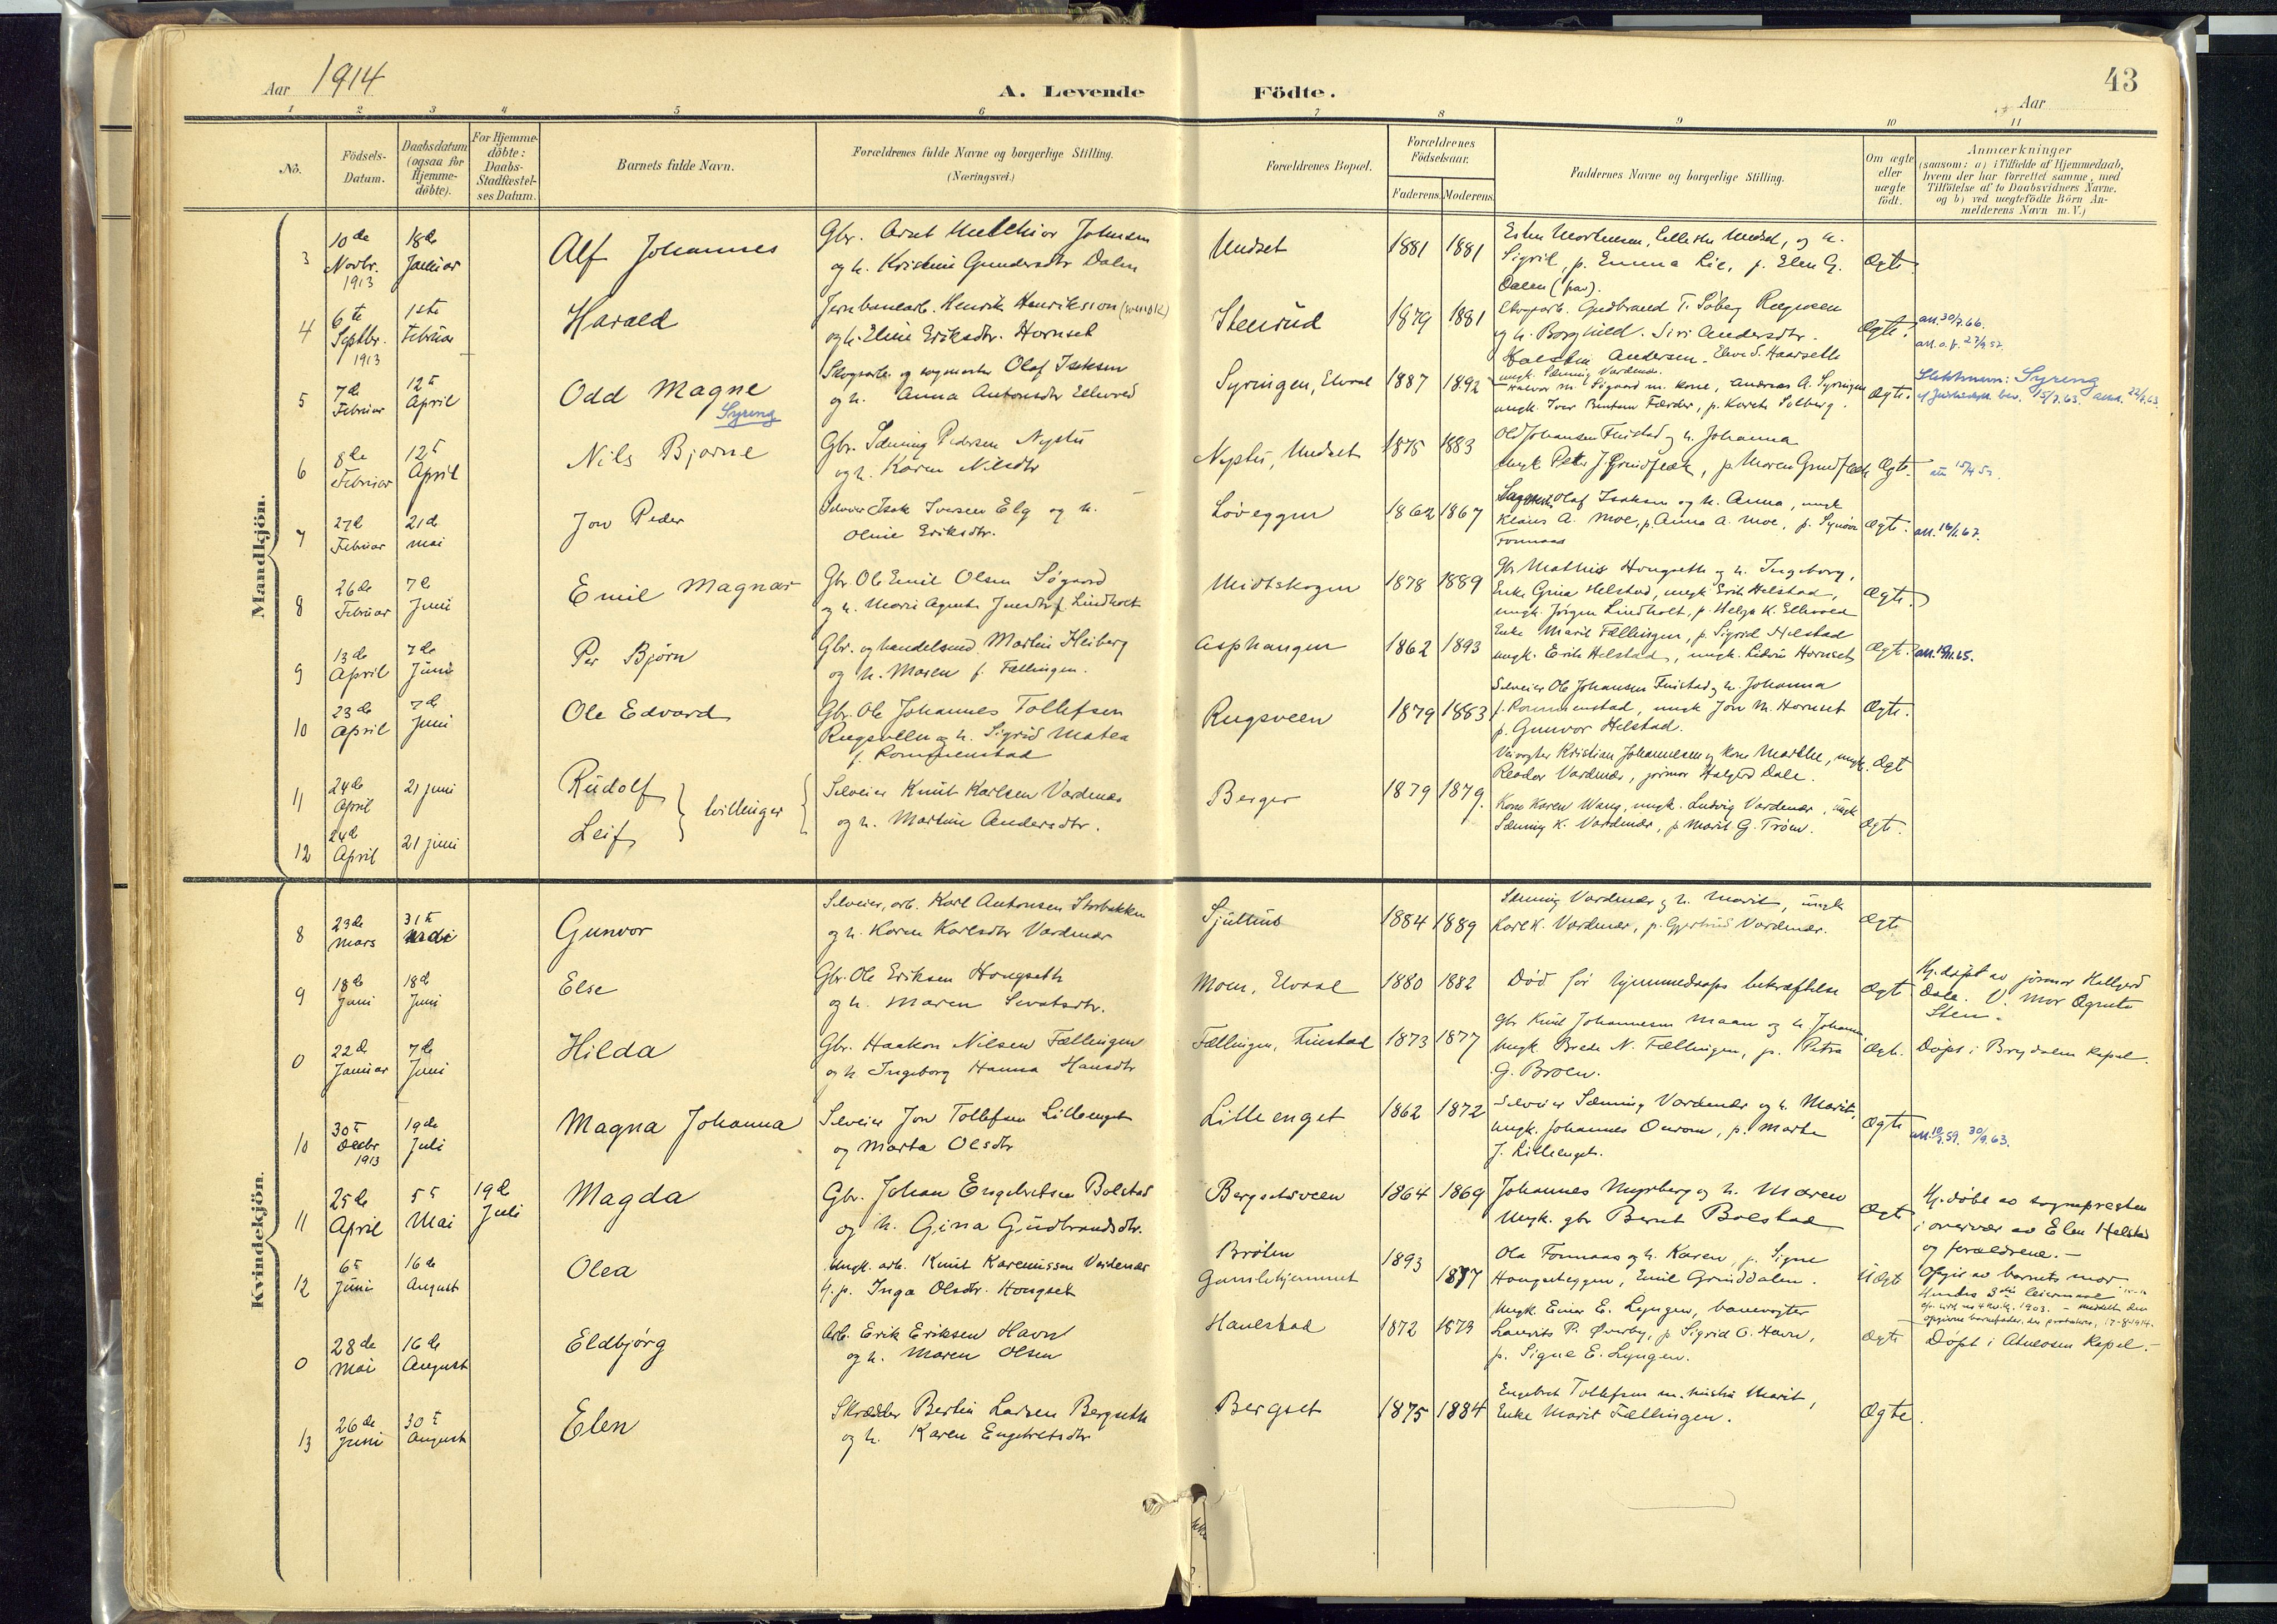 Aar 1914
A. Levende Födte.
43
Aar
1 2 3 4 5 6 7 8 9 10 11
No.
Födsels-Datum.
Daabsdatum (ogsaa for Hjemme-döbte).
For Hjemme-döbte: Daabs-Stadfæstel-ses Datum.
Barnets fulde Navn.
Forældrenes fulde Navne og borgerlige Stilling.
(Næringsvei.)
Forældrenes Bopæl.
Forældrenes Födselsaar.
Faderens. Moderens.
Faddernes Navne og borgerlige Stilling.
Om ægte eller uægte födt.
Anmærkninger
(saasom: a) i Tilfælde af Hjemmedaab, hvem der har forrettet samme, med Tilföielse af to Daabsvidners Navne. og b) ved uægtefödte Börn An-melderens Navn m. V.)
Mandkjön.
3 10de Novbr. 1913 18de Januar Alf Johannes
Gbr. Arnt Melchior Johnsen
og h. Kristine Gundersdtr Dalen
Undset 1881 1881
Sigrid, p. Emma Lie, p. Elen G.
Dalen (par).
Ægte
4 6te Septbr. 1913 1ste Februar Harald
Jernbanearb. Henrik Henriksson (svensk)
og h. Eline Eriksdtr. Hornset
Stenrud 1879 1881
og h. Borghild. Siri Andersdtr.
Ægte. an. 30/7.66.
5 7de Februar 12te April Odd Magne
Syreng
Skogsarb. og sagmester Olaf Isaksen
og h. Anna Antonsdtr Ellevold
Syringen, Elvaal 1887 1892
ungk. Sæming Vardenær.
Halvor M. Sigaard m. kone, Andreas A. Syringen
Ægte. Slektsnavn: Syreng
6 8de Februar 12te April Nils Bjarne
Gbr. Sæming Pedersen Nystu
og h. Karen Nilsdtr
Nystu, Undset 1875 1883
Ole Johansen Finstad og h. Johanna
Ægte.
7 27de Februar 21de mai Jon Peder
Selveier Isak Iversen Elg og h.
Oline Eriksdtr.
Løveggen 1862 1867
Olaf Isaksen og h. Anna, ungk
Klaus A. Moe, p. Anna A. Moe, p. Synöve
Formaas
Ægte. an. 16/1.67.
8 26de Februar 7de Juni Emil Magnar
Gbr. Ole Emil Olsen Søgaard
Midtskogen 1878 1889
Gbr Mathis Hongseth og h. Ingeborg,
Enke Grina Helstad, ungk Erik Helstad,
ungk. Jørgen Lindholt, p. Helga K. Ellevold
Ægte.
9 13de April 7de Juni Per Bjørn
Gbr. og handelsmd. Martin Heiberg
og h. Maren f. Fællingen.
Asphaugen 1862 1893
Enke Marit Fællingen, p. Sigrid Helstad
ungk. Erik Helstad, ungk. Ludvig Hornset
Ægte.
10 23de April 7de Juni Ole Edvard
Gbr. Ole Johannes Tollefsen
Rugsveen og h. Sigrid Matea
f. Rommenstad
Rugsveen 1879 1883
Selveier Ole Johansen Finstad og h. Johanna
f. Rommenstad, ungk Jon M. Hornset
p. Gunvor Helstad.
Ægte.
11 24de April 21 juni Rudolf
12 24de April 21 juni Leif
tvillinger
Selveier Knut Karlsen Vardenær
og h. Martine Andersdtr.
Berger 1879 1879.
Veivogter Kristian Johannesen og kone Marthe, ungk.
Reodor Vardenær, jormor Halgerd Dale.
Ægt
Kone Karen Wang, ungk. Ludvig Vardenær, ungk
Sæming K. Vardenær, p Marit G. Trøen.
Ægt.
Kvindekjön.
8 23de Mars 31te Mai Gunvor
Selveier, arb. Karl Antonsen Storbekken
og h. Karen Karlsdtr Vardenær
Sjulhus 1884 1889
Sæming Vardenær og h. Marit, ungk
Karl K. Vardenær, p. Gjertrud Vardenær.
Ægte
9 18de Juni 18de Juni Else
Gbr. Ole Eriksen Hongseth
og h. Maren Sivertsdtr.
Moen, Elvaal 1880 1882
Død før hjemmedaaps bekræftelse
Ægt
Hj. døpt av jormor Hallgerd
Dale. V. Mor Agnete
Sten.
0 22de Januar 7de Juni Hilda
Gbr. Haakon Nilsen Fællingen
og h Ingeborg Hanna Hansdtr
Fællingen, Finstad 1873 1877
Gbr Knut Johannesen Maan og h Johanne
Ungk. Brede N. Fællingen, p. Petra
G. Broen.
Ægt. Døpt i Brydalen Kapel.
10 30te Decbr 1913 19de Juli Magna Johanna
Selveier Jon Tollefsen Lilleenget
og Marta Olsdtr
Lilleenget 1862 1872
Selveier Sæming Vardenær og h. Marit,
ungk. Johannes Enrom, p. Marte
J. Lilleenget.
Ægte
11 25de April 5te Mai 19de Juli Magda
Gbr. Johan Engebretsen Bolstad
og h. Gina Gudbrandsdtr.
Bergsetsveen 1864 1869
Johannes Myrberg og h. Maren
Ungk. gbr Bernt Bolstad
Ægt
Hj. døbt av sognepresten
i overvær av Elen Helstad
og forældrene.
12 6te Juni 16de August Olea
Ungk. arb. Knut Kareniusson Vardenær
og p. Inga Olsdtr. Hongset
Brøten
Gamlehjemmet 1893 1877
Ola Formaas og h. Karen, p. Signe
Hongseteggen, Emil Grinddalen.
Uægt
Opgit av barnets mor.
Hendes 3die leiermaal
0 28de Mai 16de August Eldbjørg
Arb. Erik Eriksen Havn
og h. Maren Olsen
Hanestad 1872 1879
Ungk. Einar E. Lyngen, banevogter
Laurits P. Øverby, p Sigrid O. Havn,
p. Signe E. Lyngen.
Ægte Døpt i Atneosen Kapel.
13 26de Juni 30te August Elen
Skrædder Bertin Larsen Bergseth
og h. Karen Engebretsdtr
Bergset 1875 1884
Engebret Tollefsen m. hustru Marit,
Enke Marit Fællingen.
Ægte.